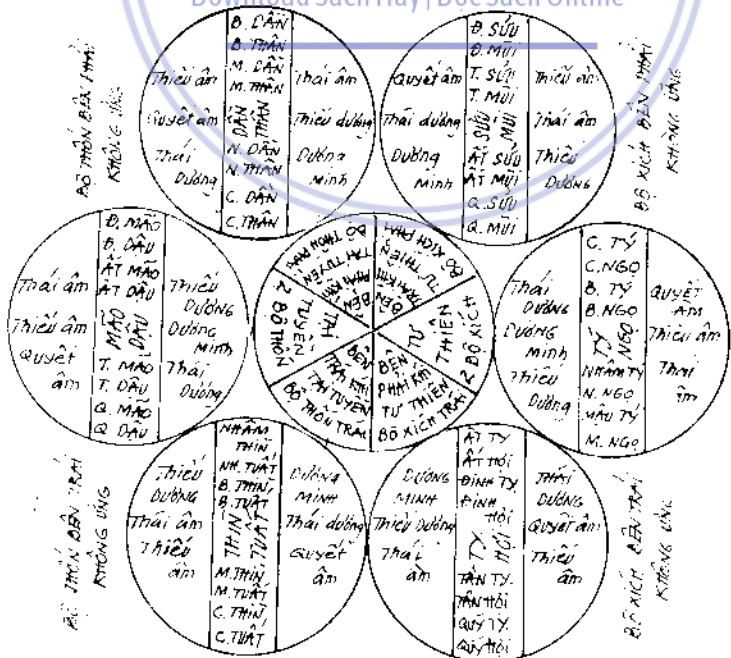 Download Sách Hay | Đọc Sách Online
BỘ THỐN BÊN PHẢI
KHÔNG ỨNG
Thiếu âm
Quyết âm
Thái
Dương
B. DẦN
B. THÂN
M. DẦN
M. THÂN
DẦN
THÂN
N. DẦN
N. THÂN
C. DẦN
C. THÂN
Thái âm
Thiếu dương
Dương
Minh
Quyết âm
Thái dương
Dương
Minh
Đ. SỬU
Đ. MÙI
T. SỬU
T. MÙI
SỬU
MÙI
ẤT SỬU
ẤT MÙI
Q. SỬU
Q. MÙI
Thiếu âm
Thái âm
Thiếu
Dương
BỘ XÍCH BÊN PHẢI
KHÔNG ỨNG
Thái âm
Thiếu âm
Quyết
âm
Đ. MÃO
Đ. DẬU
ẤT MÃO
ẤT DẬU
MÃO
DẬU
T. MÃO
T. DẬU
Q. MÃO
Q. DẬU
Thiếu
DƯƠNG
Dương
Minh
Thái
Dương
BỘ THỐN PHẢI
TẠI TUYỀN
BỘ XÍCH PHẢI
TƯ THIÊN
TẠI
TUYỀN
2 BỘ THỐN
TƯ
THIÊN
2 BỘ XÍCH
BÊN
TRÁI KHI
TẠI TUYỀN
BỘ THỐN TRÁI
BÊN
PHẢI KHI
TƯ THIÊN
BỘ XÍCH TRÁI
Thái
DƯƠNG
DƯƠNG
Minh
Thiếu
Dương
C. TÝ
C. NGỌ
B. TÝ
B. NGỌ
TÝ
NGỌ
NHÂM TÝ
N. NGỌ
MẬU TÝ
M. NGỌ
QUYẾT
ÂM
Thiếu âm
Thái
âm
BỘ THỐN BÊN TRÁI
KHÔNG ỨNG
Thiếu
DƯƠNG
Thái âm
Thiếu
âm
NHÂM
THÌN
NH. TUẤT
B. THÌN
B. TUẤT
THÌN
TUẤT
M. THÌN
M. TUẤT
C. THÌN
C. TUẤT
DƯƠNG
MINH
Thái dương
Quyết
âm
DƯƠNG
MINH
Thiếu Dương
Thái
âm
ẤT TỴ
ẤT HỢI
ĐINH TỴ
ĐINH
HỢI
TỴ
HỢI
TÂN TỴ
TÂN HỢI
QUÝ TỴ
QUÝ HỢI
THÁI
DƯƠNG
QUYẾT âm
Thiếu
âm
BỘ XÍCH BÊN TRÁI
KHÔNG ỨNG